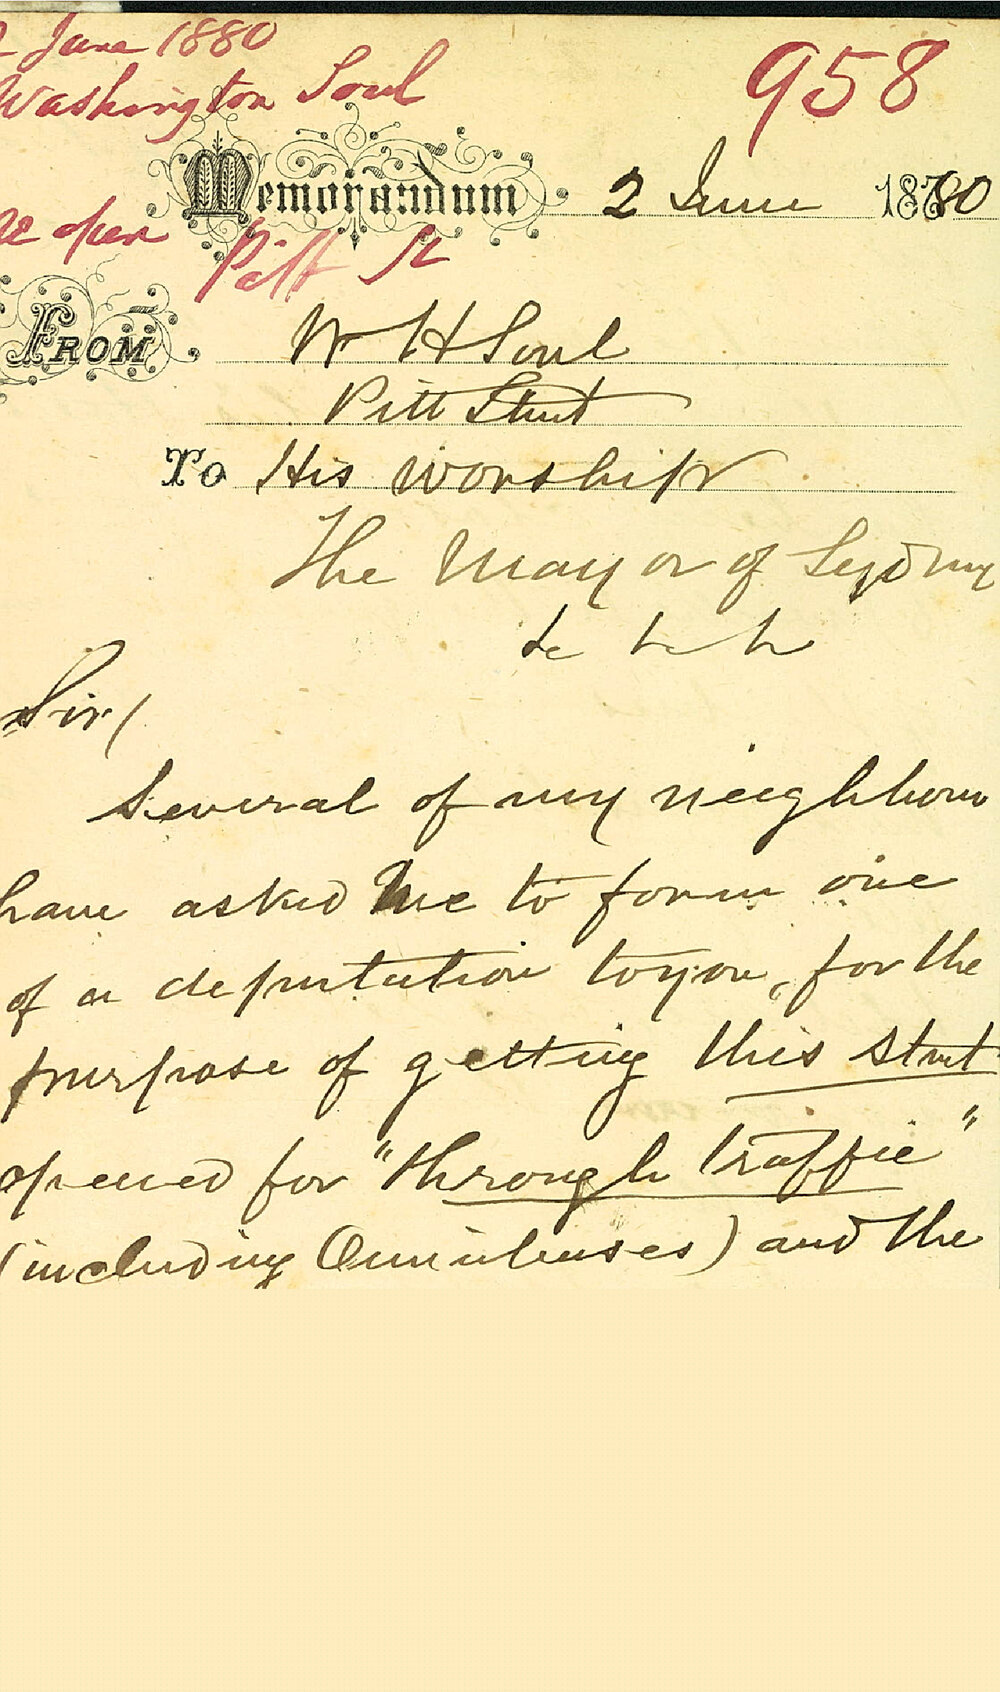 2 June 1880
Washington Soul
958
Memorandum 2 June 1880
re open Pitt St
FROM W H Soul
Pitt Street
To His worship
The Mayor of Sydney
&c &c &c
Sir/
Several of my neighbours
have asked Me to form one
of a deputation to you, for the
purpose of getting this street
opened for "through traffic"
(including Omnibuses) and the